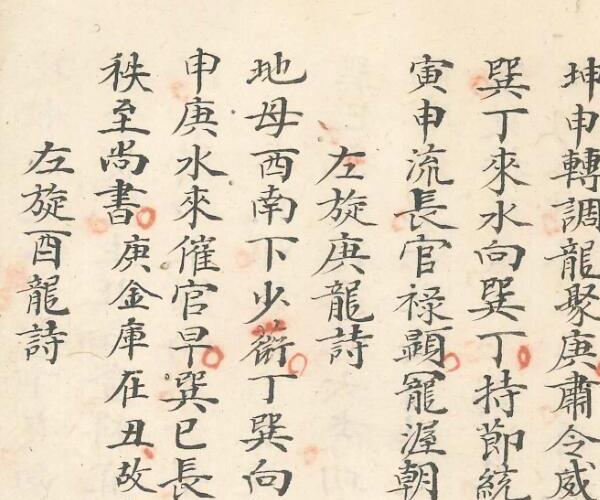 坤申轉調龍聚庚肅令威
巽丁來水向巽丁持節統
寅申流長官祿顯寵渥朝
左旋庚龍詩
地母酉南下少蔚丁巽向
申庚水來催官早巽巳長
秩至尚書庚金庫在丑故
左旋酉龍詩